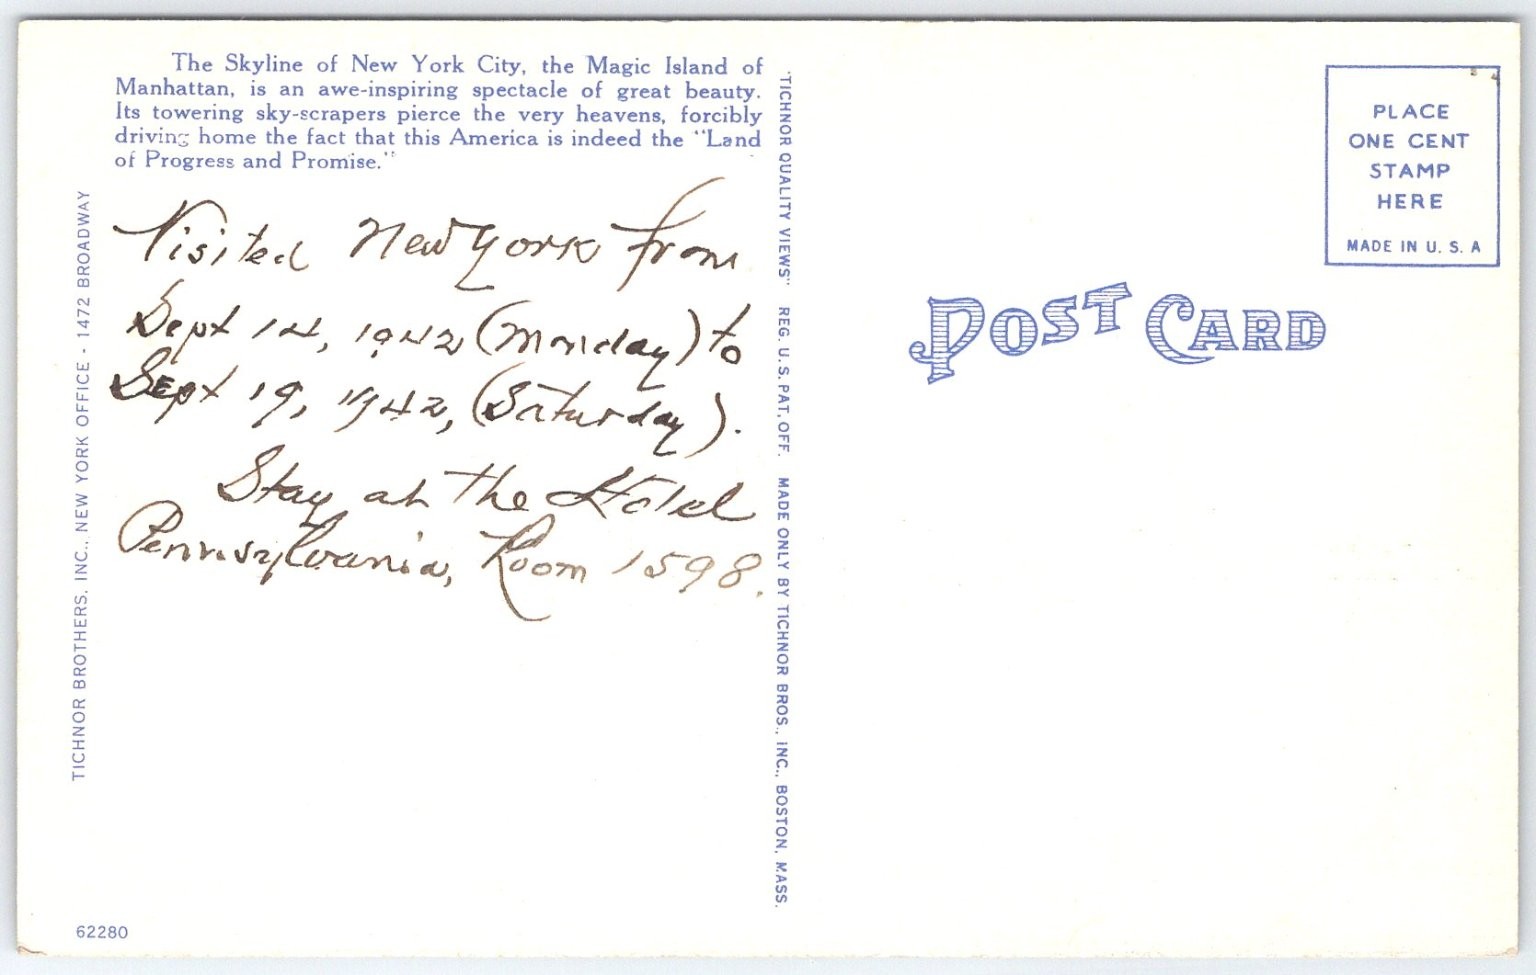 The Skyline of New York City, the Magic Island of
Manhattan, is an awe-inspiring spectacle of great beauty.
Its towering sky-scrapers pierce the very heavens, forcibly
driving home the fact that this America is indeed the "Land
of Progress and Promise."
Visited New York from
Sept 14, 1942 (Monday) to
Sept 19, 1942, (Saturday).
Stay at the Hotel
Pennnsylvania, Room 1598.
TICHNOR BROTHERS, INC., NEW YORK OFFICE - 1472 BROADWAY
62280
"TICHNOR QUALITY VIEWS" REG. U. S. PAT. OFF. MADE ONLY BY TICHNOR BROS., INC., BOSTON, MASS.
PLACE
ONE CENT
STAMP
HERE
MADE IN U. S. A
POST CARD